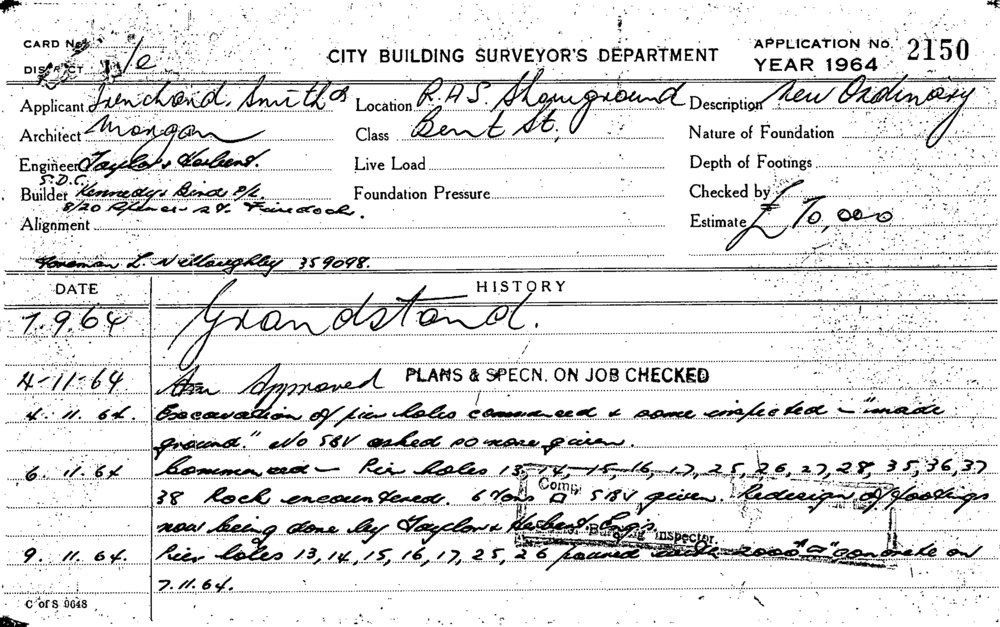 CARD No.
CITY BUILDING SURVEYOR'S DEPARTMENT
APPLICATION No. 2150
DISTRICT
YEAR 1964
Applicant Trenchard, Smith &
Location R.A.S. Showground
Description New Ordinary
Architect Morgan
Class Bent St,
Nature of Foundation
Engineer Taylor & Herbert.
Live Load
Depth of Footings
S.D.C.
Builder Kennedy & Bird P/L
Foundation Pressure
Checked by
8/20 Spencer St.
Alignment
Estimate £ 70,000
Foreman L Willoughby 359098.
DATE
HISTORY
7.9.64 Grandstand.
4-11-64 Approved PLANS & SPECN. ON JOB CHECKED
4.11.64. Excavation of pier holes commenced & some inspected - "made
ground." No SBV asked so none given.
6.11.64 Commenced - Pier holes 13, 14, 15, 16, 17, 25, 26, 27, 28, 35, 36, 37
38 Rock encountered. 6 Tons □' SBV given. Redesign of footings
now being done by Taylor & Herbert Engs.
Building Inspector.
9.11.64. Pier holes 13, 14, 15, 16, 17, 25, 26 poured with 2000# □" concrete on
7.11.64.
C of S 9648